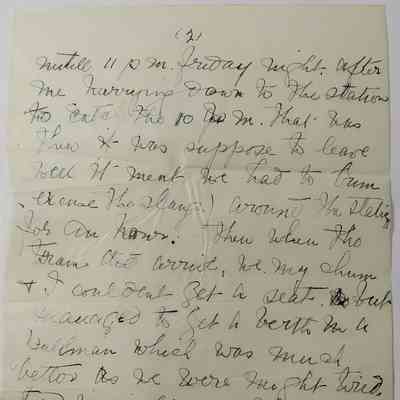 (2)
untill 11 p m. Friday night. after
me hurrying down to the station
to catch the 10 P m. that was
when it was suppose to leave
well it ment we had to bum
excuse the slang!) around the station
for an hour. Then when the
train did arrive, we my chum
+ I could ent get a seat. but
managed to get a berth in a
Pullman which was much
better as we were might tired.